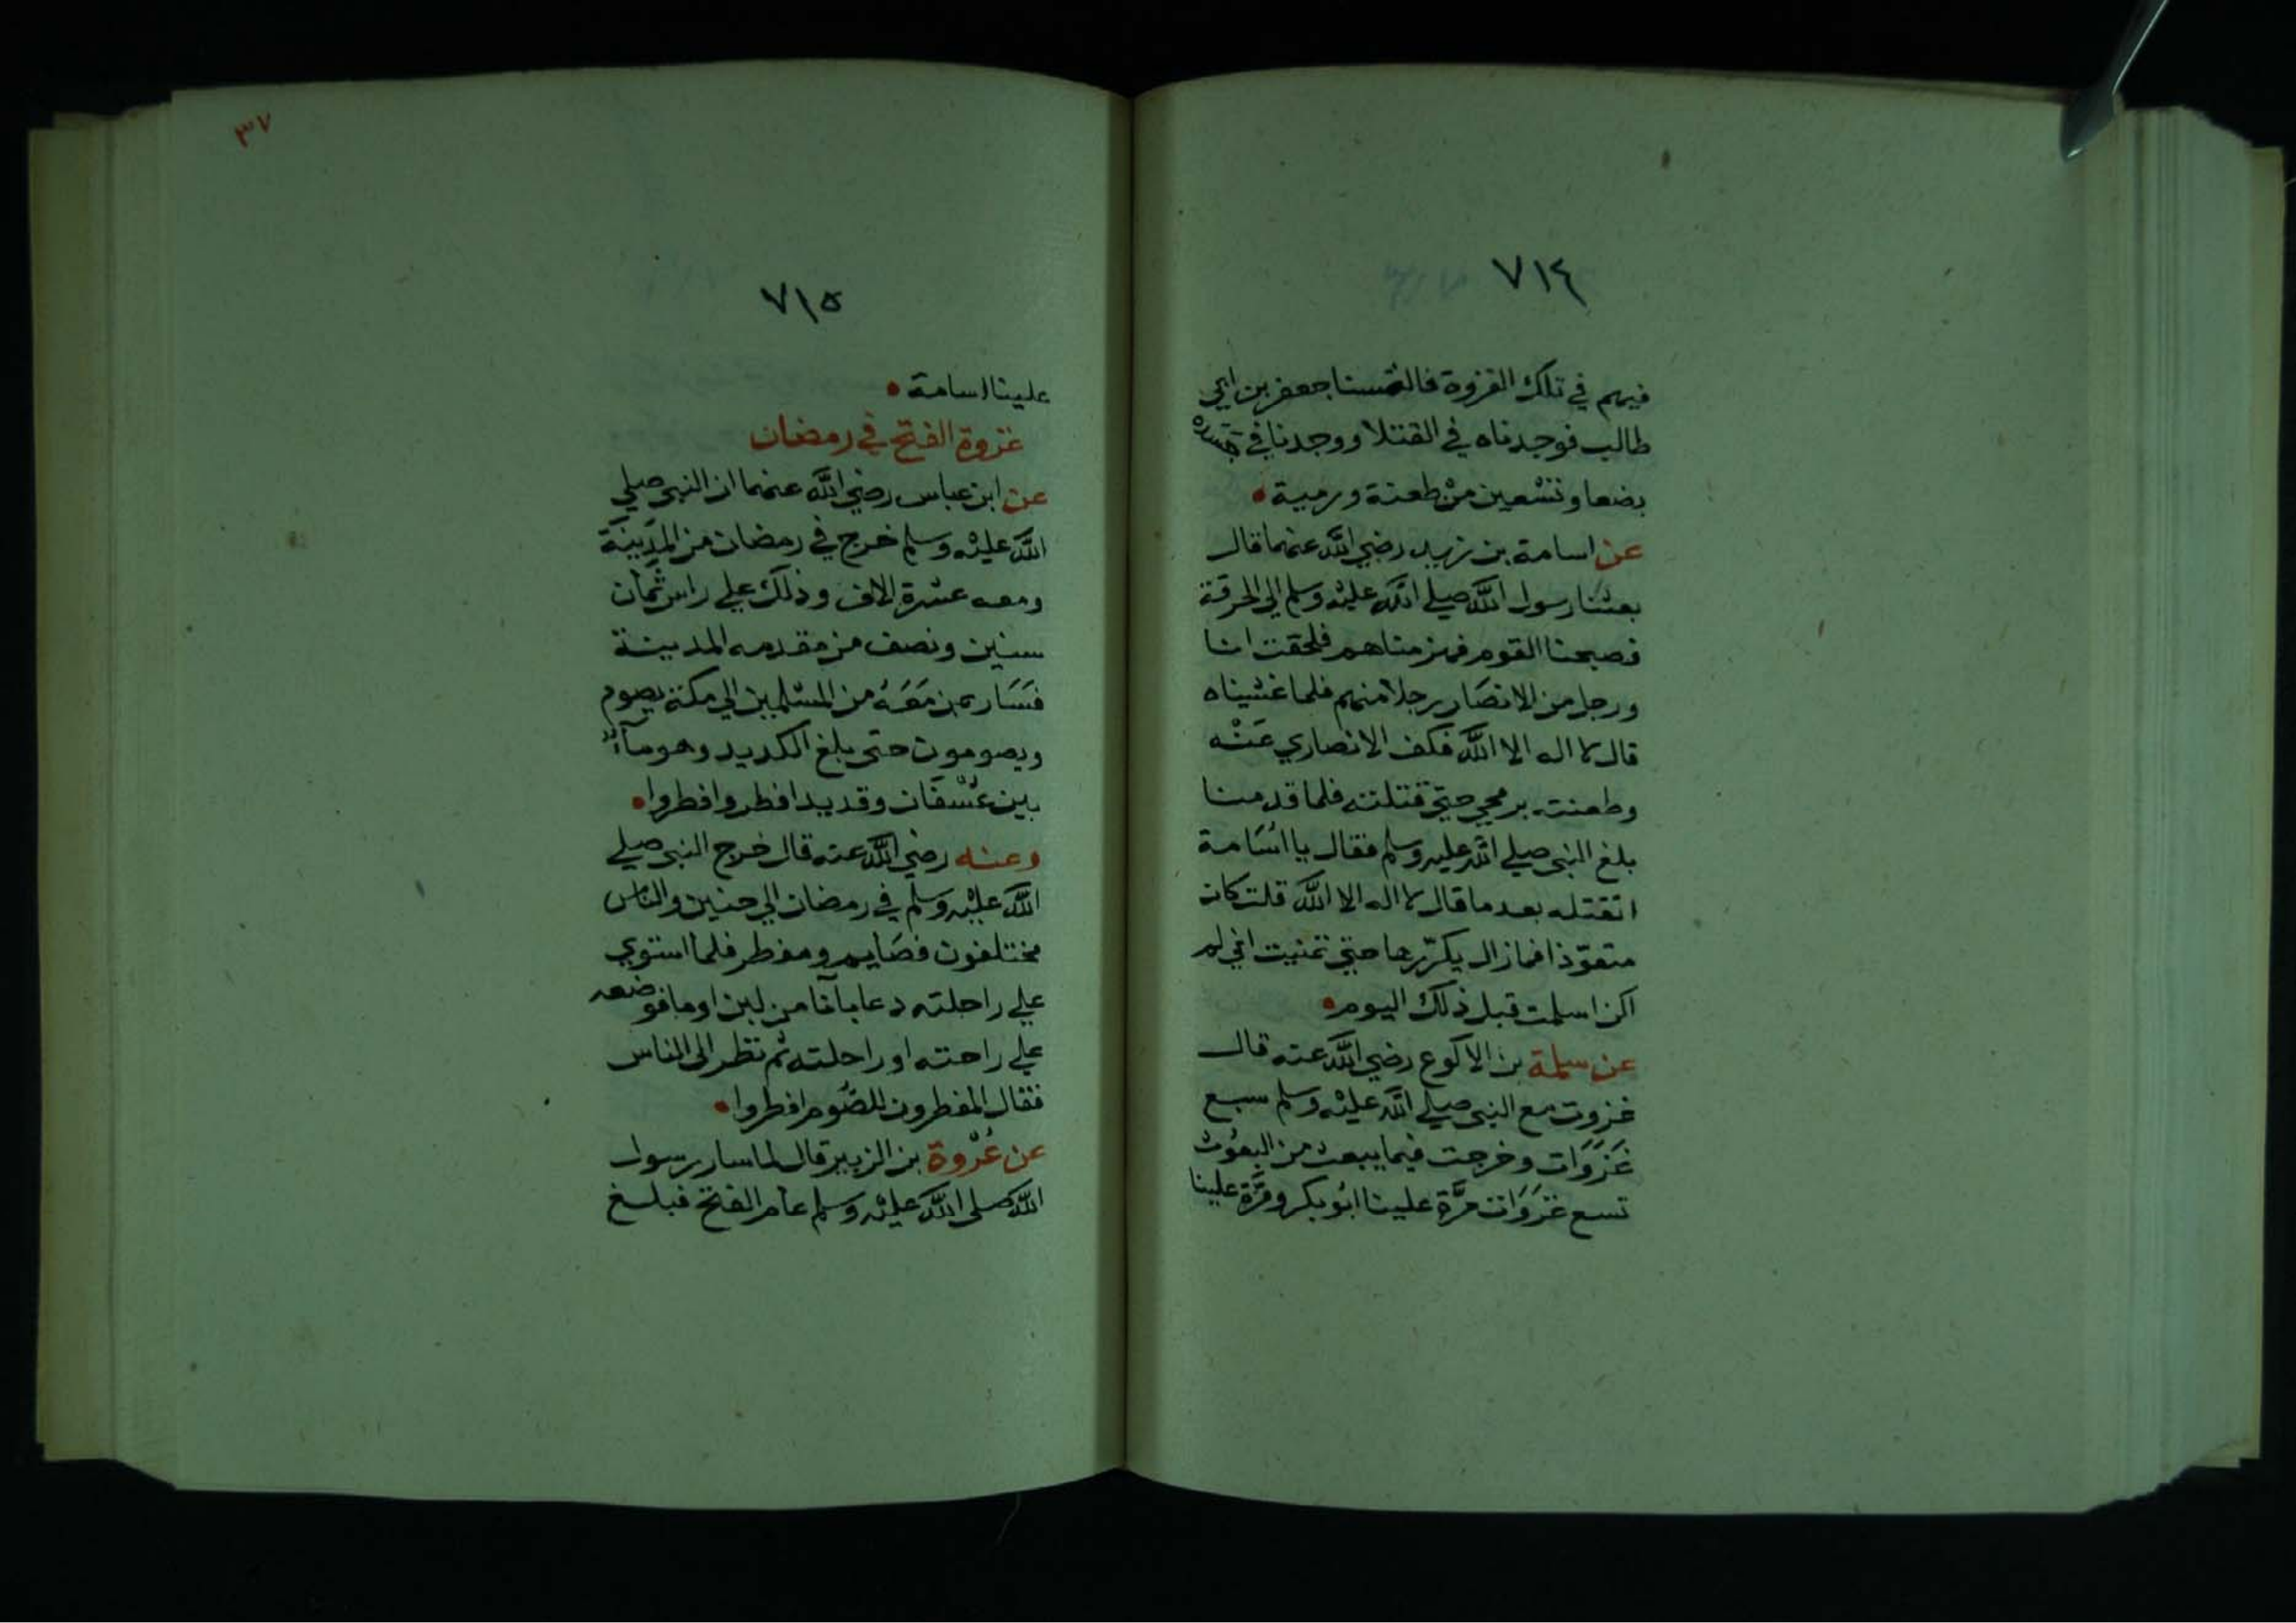 ٧١٤
فيهم في تلك الغزوة فالتمسنا جعفر بن ابي
طالب فوجدناه في القتلا ووجدنا في جسده
بضعا وتسعين من طعنة ورمية
عن اسامة بن زيد رضي الله عنهما قال
بعثنا رسول الله صلي الله عليه وسلم الي الحرقة
فصبحنا القوم فهزمناهم فلحقت انا
ورجل من الانصار برجلا منهم فلما غشيناه
قال لا اله الا الله فكف الانصاري عنه
وطعنته برمحي حتي قتلته فلما قدمنا
بلغ النبي صلي الله عليه وسلم فقال يا اسامة
اتقتله بعد ما قال لا اله الا الله قلت كان
متعوّذا فما زال يكرّرها حتي تمنيت اني لم
اكن اسلمت قبل ذلك اليوم
عن سلمة بن الاكوع رضي الله عنه قال
غزوت مع النبي صلي الله عليه وسلم سبع
غَزَوَات وخرجت فيما يبعث من البعُوث
تسع غَزَوَات مرَّة علينا ابُو بكر ومَّرة علينا
٣٧
٧١٥
علينا اسامة
غزوة الفتح في رمضان
عن ابن عباس رضي الله عنهما ان النبي صلي
الله عليه وسلم خرج في رمضان من المدينة
ومعه عشرة الاف وذلك علي راس ثمان
سنين ونصف من مقدمه المدينة
فسَار بمن مَعَهُ من المسْلمين الي مكة يصوم
ويصومون حتي بلغ الكديد وهو مآء
بين عُسْفَان وقديد افطر وافطروا
وعنه رضي الله عنه قال خرج النبي صلي
الله عليه وسلم في رمضان الي حنين والناس
مختلفون فصَايم ومفطر فلما استوي
علي راحلته دعا باناء من لبن او ما فوضعه
علي راحته او راحلته ثم نظر الى الناس
فقال المفطرون للصُّوم افطروا
عن عُرْوة بن الزبير قال لما سار رسول
الله صلى الله عليه وسلم عام الفتح فبلغ